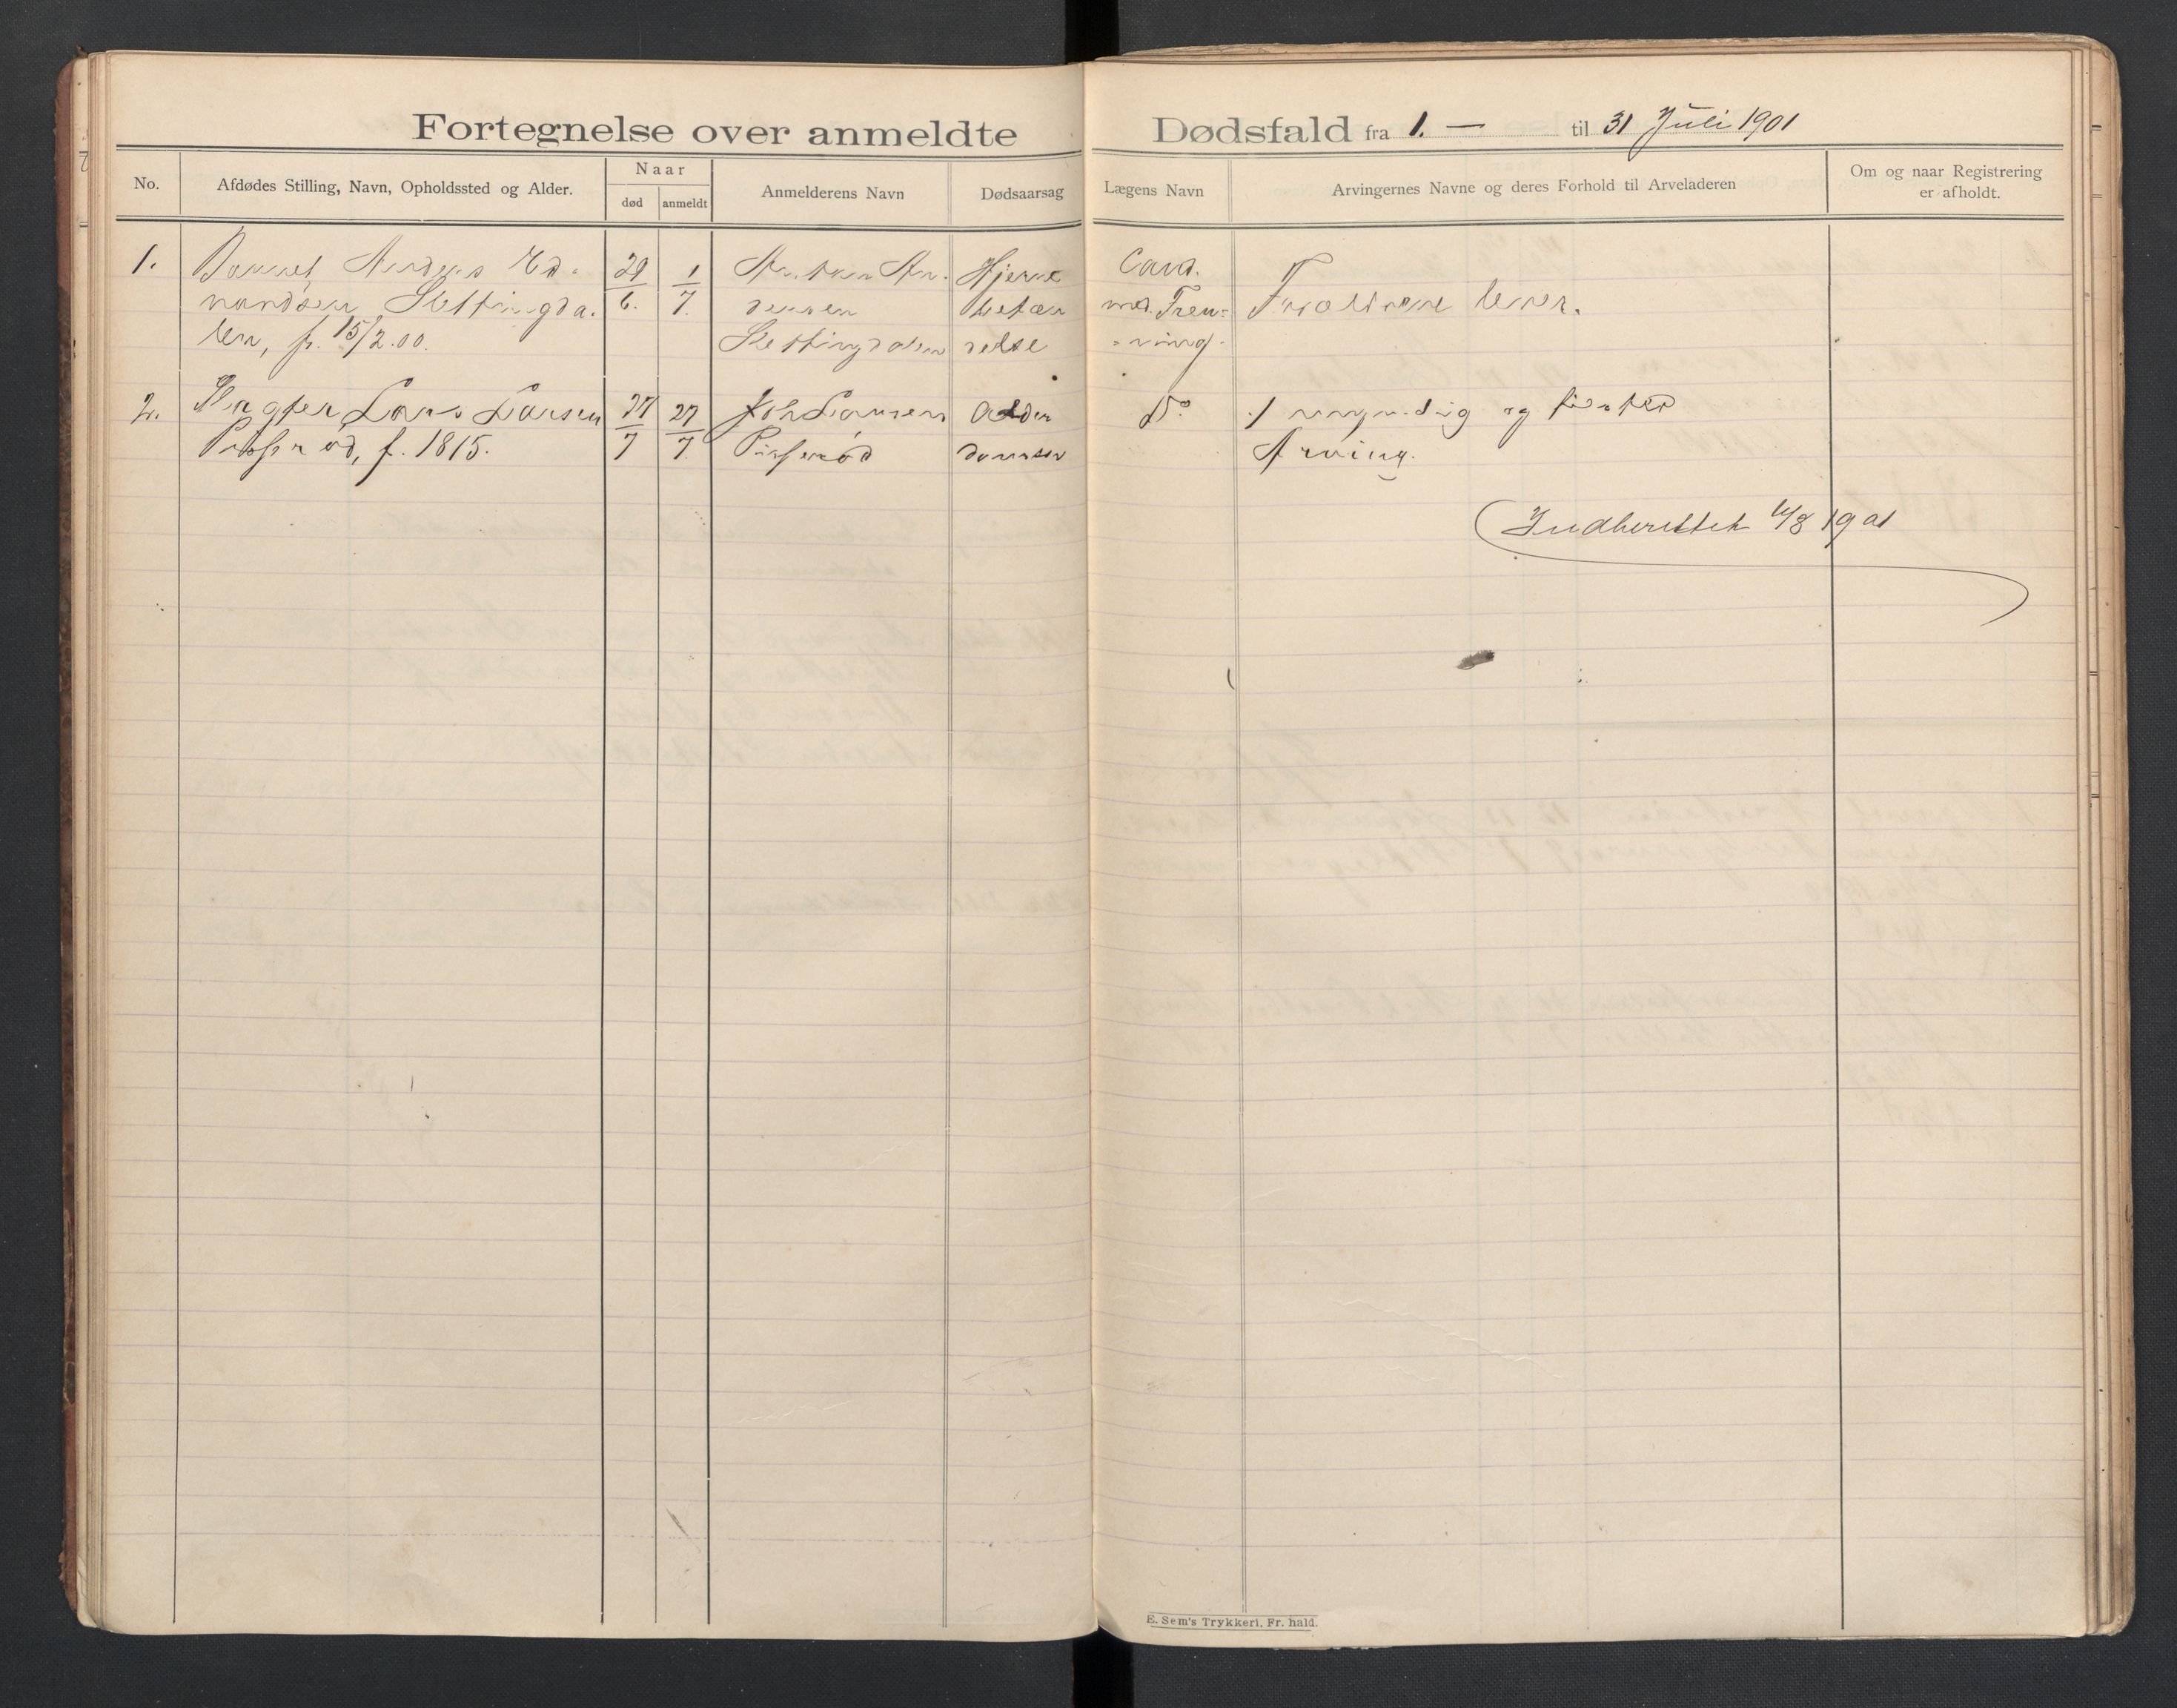 Fortegnelse over anmeldte Dødsfald fra 1. — til 31 Juli 1901
No.
Afdødes Stilling, Navn, Opholdssted og Alder.
Naar
død
anmeldt
Anmelderens Navn
Dødsaarsag
Lægens Navn
Arvingernes Navne og deres Forhold til Arveladeren
Om og naar Registrering
er afholdt.
1.
Barnet Anders Ed-
vardsen Slettingda-
len, f. 15/2.00.
29/6.
1/7.
An-
dersen
Slettingdalen
Hjerne
betæn
delse
Cand.
med. Tren-
ning.
Forældrene lever.
2.
Lars Larsen
f. 1815.
27/7
27/7
Joh. Larsen
Alder
domssv
Do
1 umyndig og
Arving.
Indberettet /8 1901
E. Sem's Trykkeri, Fr. hald.